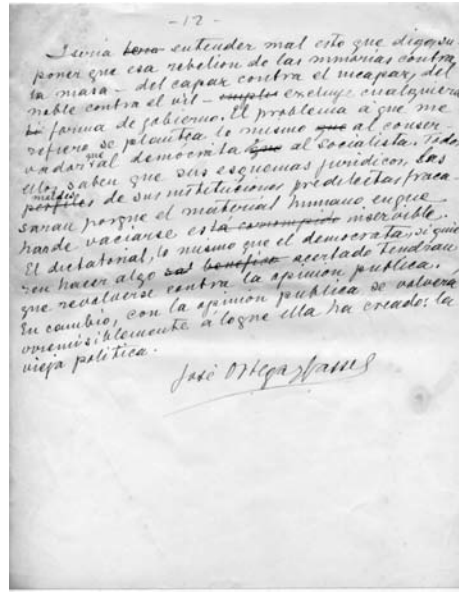 -12-
I sería entender mal esto que digo, su
poner que esa rebelion de las minorias contra
la masa - del capaz contra el incapaz, del
noble contra el vil - excluye cualquiera
forma de gobierno. El problema a que me
refiero se plantea lo mismo que al conser
vador que al demócrata que al Socialista. Todos
ellos saben que sus esquemas jurídicos, los
moldes perfiles de sus instituciones predilectas fraca
saran porque el material humano en que
han de vaciarse esta corrompido inservible.
El dictatorial, lo mismo que el democrata, si quie
ren hacer algo benefico acertado tendrian
que revolverse contra la opinion publica.
En cambio, con la opinion publica se volvera
irremisiblemente a lo que ella ha creado: la
vieja politica.
José Ortega y Gasset